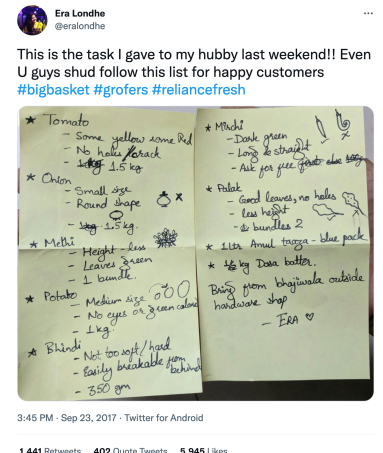 Era Londhe
@eralondhe
This is the task I gave to my hubby last weekend!! Even
U guys shud follow this list for happy customers
#bigbasket #grofers #reliancefresh
★ Tomato
– Some yellow some Red
– No holes/crack
– 1.5 kg
★ Onion
– Small size
– Round shape
x
– 1.5 kg.
★ Methi
– Height - less
– Leaves green
– 1 bundle.
★ Potato
– Medium size
– No eyes or green colone
– 1kg.
★ Bhindi
– Not too soft/hard
– Easily breakable from
behind
– 350 gm
★ Mirchi
– Dark green
– Long & straight
– Ask for free
★ Palak
– Good leaves, no holes
– less height
– bundles 2
★ 1 ltr Amul taaza - blue pack
★ kg Dosa batter.
Bring from bhajiwala outside
hardware shop
– ERA ♡
3:45 PM · Sep 23, 2017 · Twitter for Android
1,441 Retweets 402 Quote Tweets 5,945 Likes